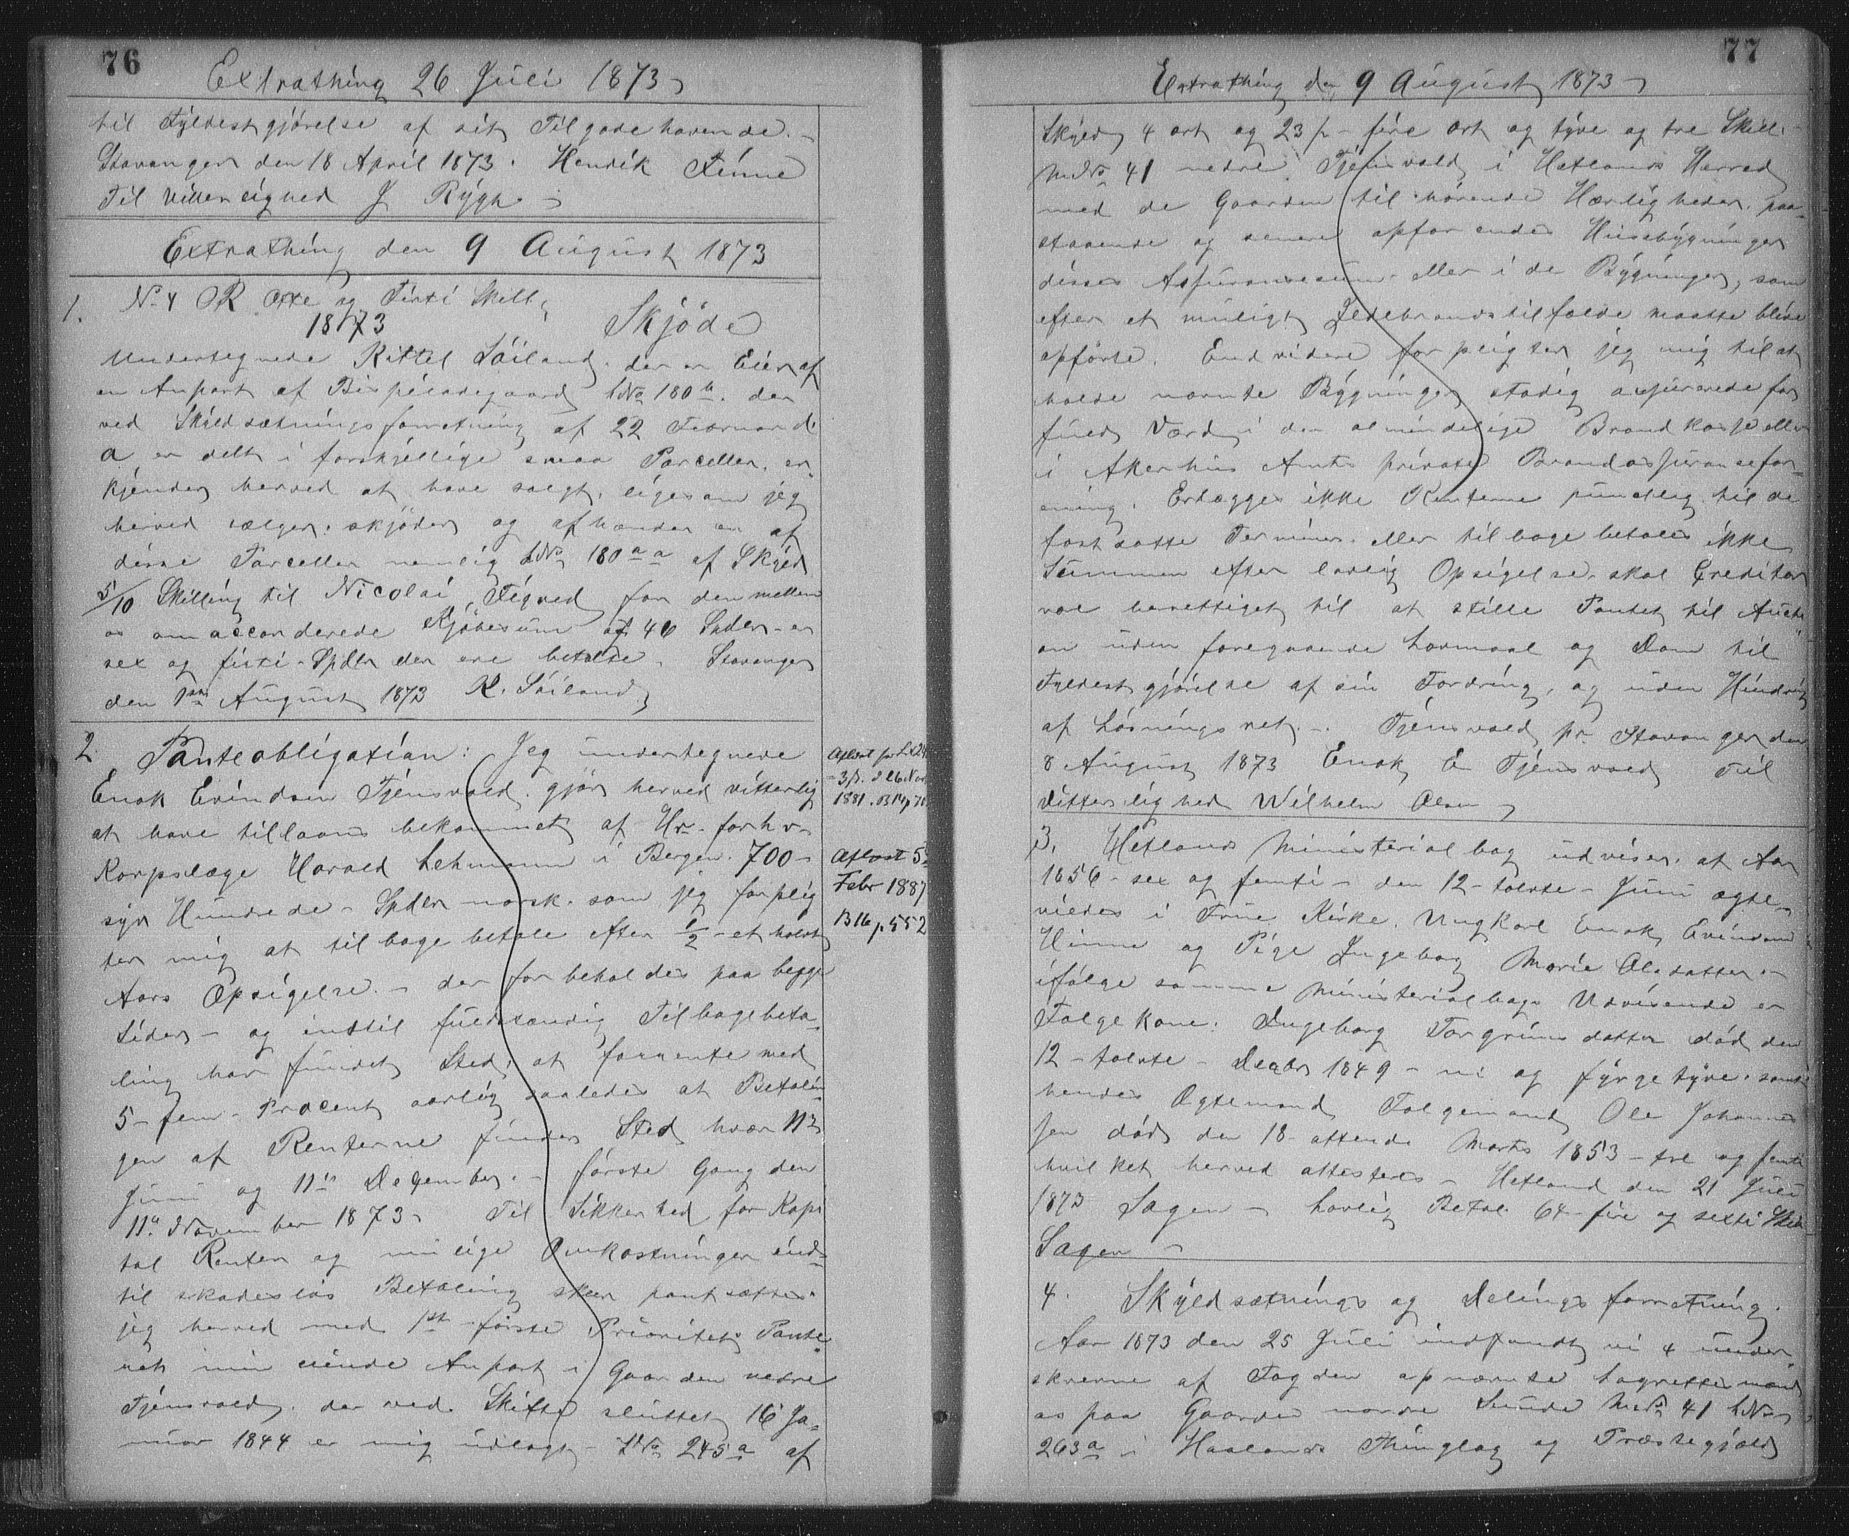 76
Extrathing 26 Juli 1873
til Fyldestgjörelse af sit Tilgodehavende. –
Stavanger den 18 April 1873. Hendrik Finne
Til Vitterlighed J Rygh –
Extrathing den 9 August 1873
1. No 4 Otte og Firti Skill
1873 Skjöde
Undertegnede Kittel Söiland, der er Eier af
en Anpart af Bispeladegaard LNo 180 b. der
ved Skyldsætningsforretning af 22 Februar d.
A er delt i forskjellige smaa Parceller, er-
kjender herved at have solgt, ligesom jeg
herved sælger, skjöder og afhænder en af
disse Parceller nemlig LNo 180 a a af Skyld
5/10 Skilling til Nicolai Tigved for den mellem
os omaccorderede Kjöbesum af 46 Spdlr – er
sex og firti – Spdlr der ere betalte. Stavanger
den 1ste August 1873 K. Söiland
2. Panteobligation: Jeg undertegnede
Enok Evindsen Tjensvold, gjör herved vitterlig
at have tillaans bekommet af Hr. forhv.
Korpslæge Harald Lehmann i Bergen 700 –
syv Hundrede – Spdlr norsk. som jeg forplig
ter mig at tilbagebetale efter 1/2 – et halvt
Aars Opsigelse – der forbeholdes paa begge
Sider – og indtil fuldstændig Tilbagebeta-
ling har fundet Sted, at forrente med
5 – fem – Procent aarlig saaledes at Betalin
gen af Renterne finder Sted hver 11te
Juni og 11te December. – förste Gang den
11te November 1873. Til Sikkerhed for Kapi
tal Renter og mulige Omkostninger ind-
til skadeslös Betaling skeer pantsætter
jeg herved med 1st – förste Prioritets Pante
ret min eiende Anpart i Gaarden nedre
Tjensvold, der ved Skifte sluttet 16 Ja-
nuar 1844 er mig udlagt – LNo 245 a af
Aflöst for Lit 24
– 3/. d 26 Nov
1881. B 14 p 70
Aflöst 5
Febr 1887
B 16 p. 552
77
Extrathing den 9 August 1873
Skyld 4 ort og 23 /– fire ort og tyve og tre Skill. –
MNo 41 nedre Tjensvold i Hetlands Herred
med de Gaarden tilhörende Herligheder, paa-
staaende og senere opförendes Huusbygninger
disses Assurancesum eller i de Bygninger, som
efter et muligt Ildebrandstilfælde maatte blive
opförte. Endvidere forpligter jeg mig til at
holde nævnte Bygninger stadig assurerede for
fuld Værd i den almindelige Brandkasse eller
i Akershus Amts private Brandassuranceför-
ening. Erlægges ikke Renterne punctlig til de
fastsatte Terminer eller tilbagebetales ikke
Summen efter lovlig Opsigelse, skal Creditor
være berettiget til at stille Pantet til Aucti-
on uden foregaaende Lovmaal og Dom til
Fyldestgjörelse af sin Fordring, og uden Hindring
af Lösningsret. – Tjensvold pr. Stavanger den
8 August 1873 Enok E Tjensvold Til
Vitterlighed Wilhelm Olsen
3. Hetlands Ministerialbog udviser, at Aar
1856 – sex og femti – den 12 – tolvte – Juni ægte-
viedes i Frue Kirke, Ungkarl Enok Evindsen
Hinna og Pige Ingeborg Marie Olsdatter. –
ifölge samme Ministerialbogs Udvisende er
Folgekone: Ingeborg Torgrimsdatter död den
12 – tolvte – Decbr 1849 – ni og fyrgetyve, samt
hendes Ægtemand, Folgemand Ole Johannes
sen död den 18 – attende Marts 1853 – tre og femti
hvilket herved attesteres – Hetland den 21 Juli
1873 Sagen – Lovlig Betal. 64 – fire og sexti Skil
Sagen –
4. Skyldsætnings og Delingsforretning.
Aar 1873 den 25 Juli indfandt vi 4 under-
skrevne af Fogden opnævnte Lagrettesmænd
os paa Gaarden nordre Sunde MNo 41 LNo
263 a i Haalands Thinglag og Præstegjæld